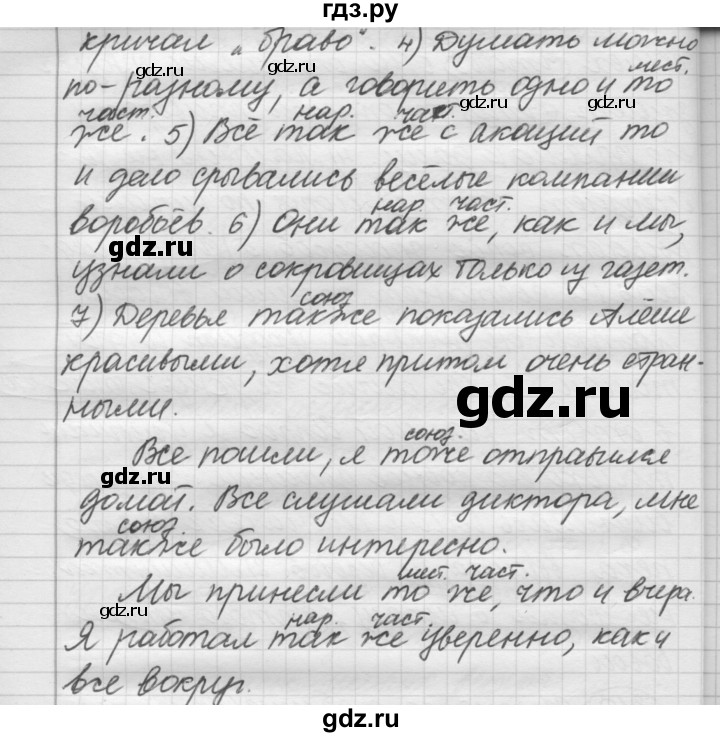 гдз.ру
кричал „браво“. 4) Думать можно
gdz.ru
мест.
по-разному, а говорить одно и то
gdz.ru
част. нар. част.
же. 5) Всё так же с акаций то
и дело срывались весёлые компании
нар. част.
воробьёв. 6) Они так же, как и мы,
gdz.ru
узнали о сокровищах только из газет.
союз
7) Деревья также показались Алёше
красивыми, хотя притом очень стран-
gdz.ru
ными.
союз.
Все пошли, я тоже отправился
gdz.ru
домой. Все слушали диктора, мне
союз.
также было интересно.
мест. част.
Мы принесли то же, что и вчера.
gdz.ru
нар. част.
Я работал так же уверенно, как и
все вокруг.
gdz.ru
gdz.ru